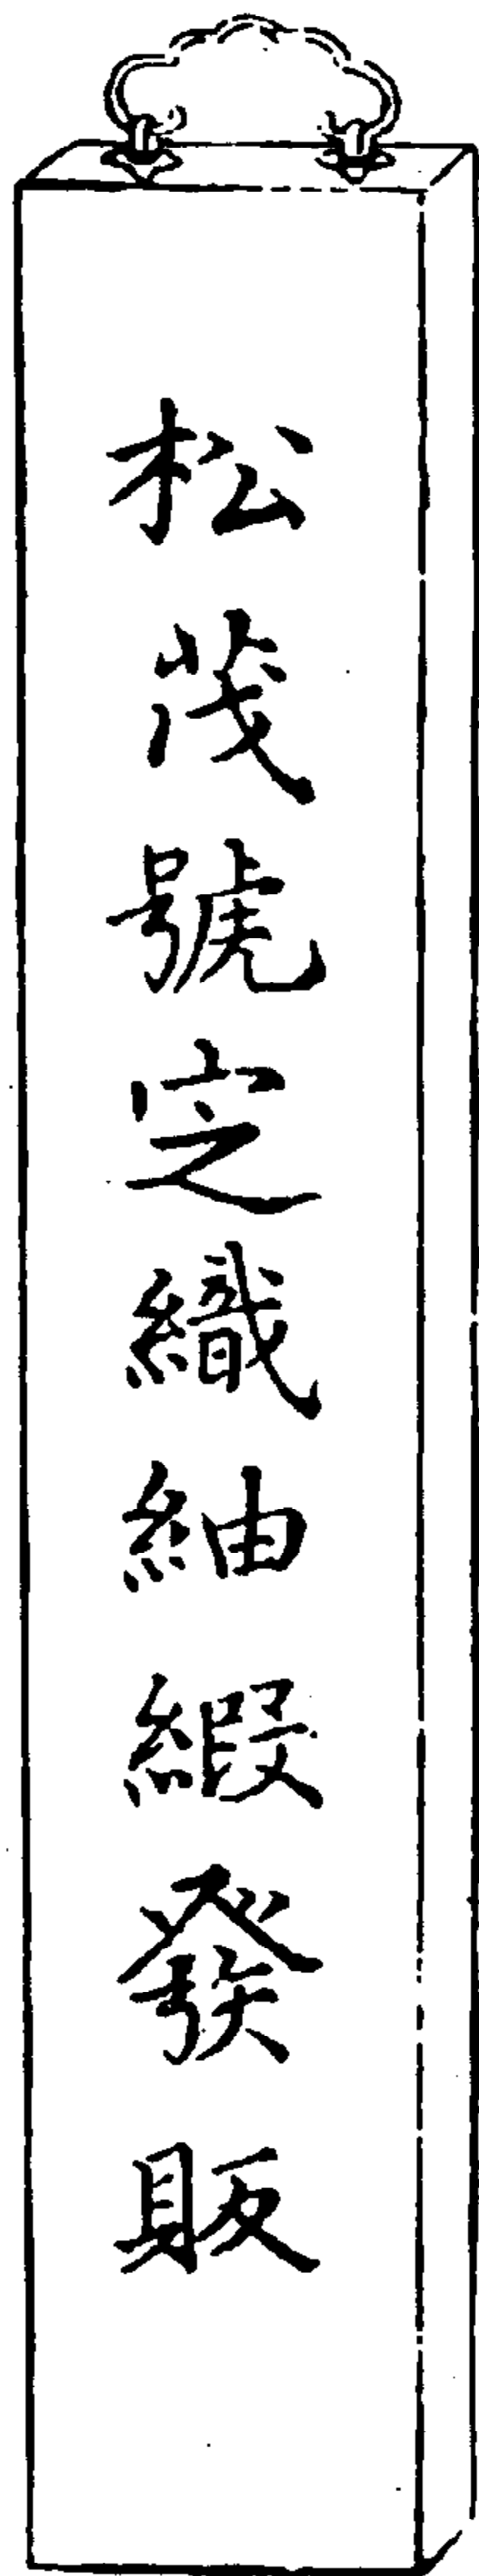 松茂號定織紬緞發販